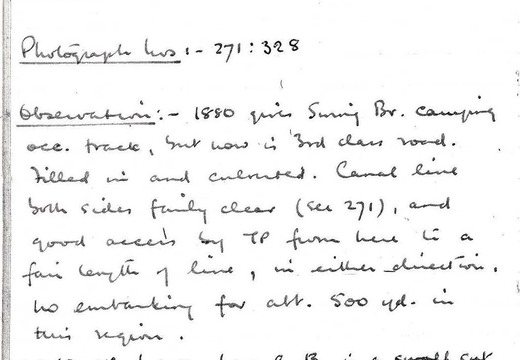 Photograph nos :- 271 : 328
Observation :- 1880 gives Swing Br. carrying
occ. track, but now is 3rd class road.
Filled in and culverted. Canal line
both sides fairly clear (see 271), and
good access by TP from here to a
fair length of line, in either direction.
No embanking for abt. 500 yd. in
this region.
is a small cut